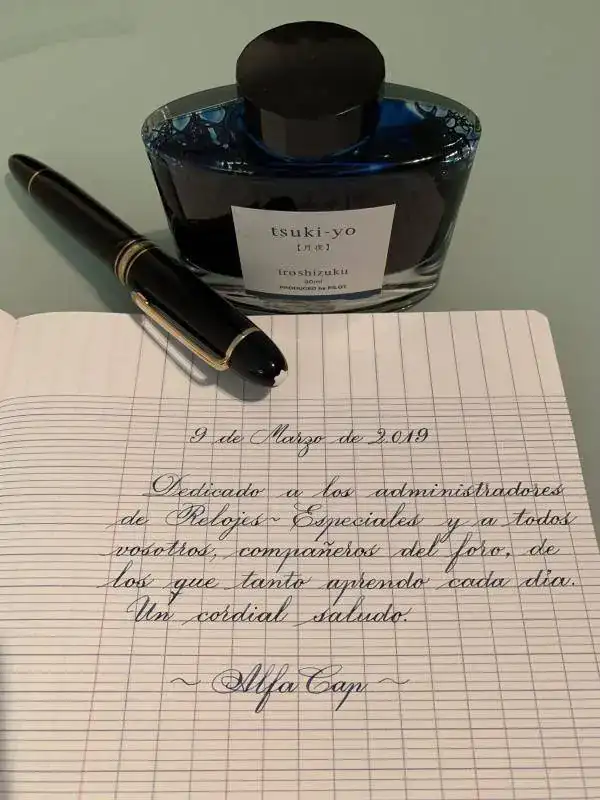 tsuki-yo
【月夜】
iroshizuku
50ml
PRODUCED by PILOT
9 de Marzo de 2.019
Dedicado a los administradores
de Relojes~Especiales y a todos
vosotros, compañeros del foro, de
los que tanto aprendo cada día.
Un cordial saludo.
~ AlfaCap ~